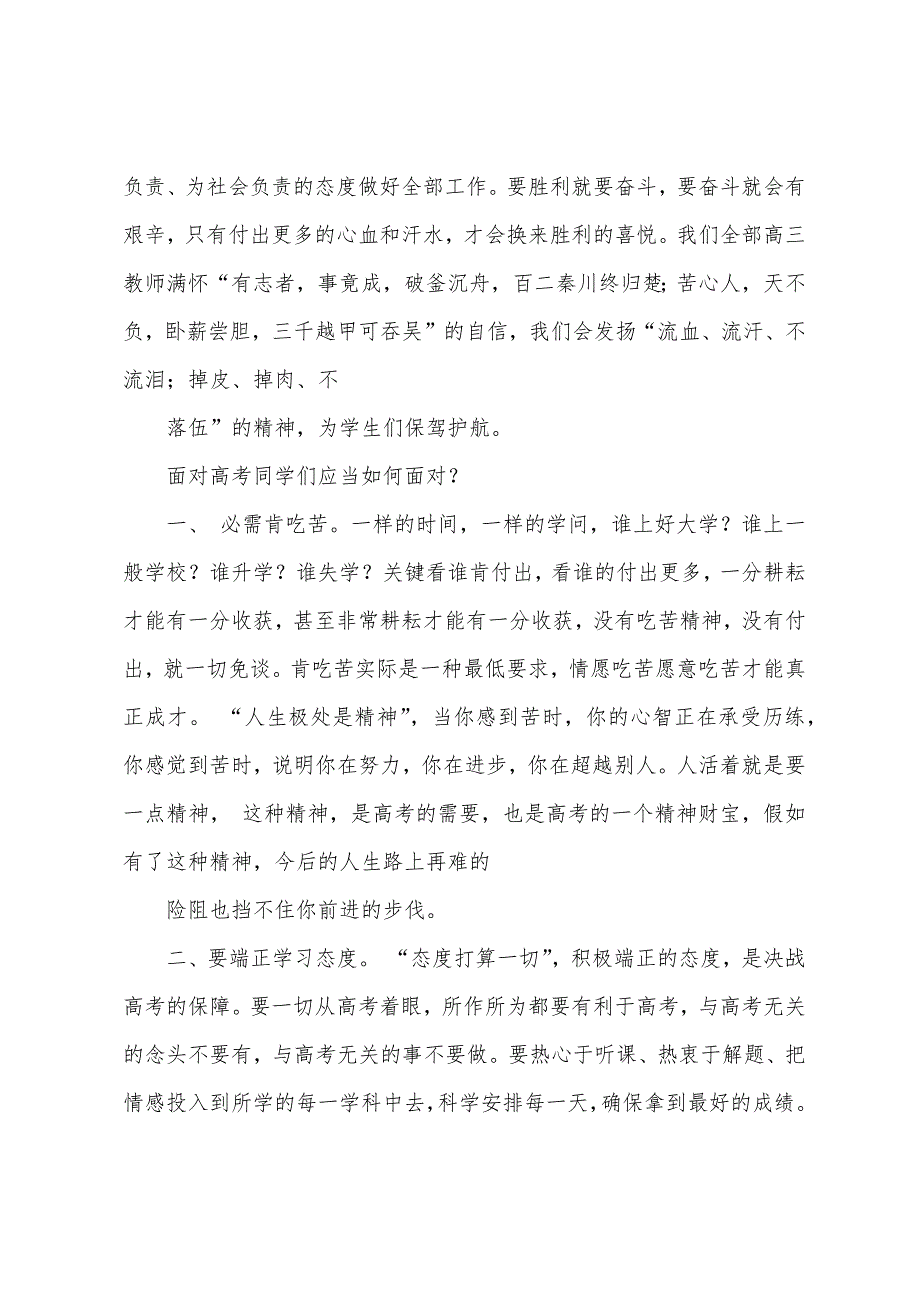 负责、为社会负责的态度做好全部工作。要胜利就要奋斗，要奋斗就会有
艰辛，只有付出更多的心血和汗水，才会换来胜利的喜悦。我们全部高三
教师满怀“有志者，事竟成，破釜沉舟，百二秦川终归楚；苦心人，天不
负，卧薪尝胆，三千越甲可吞吴”的自信，我们会发扬“流血、流汗、不
流泪；掉皮、掉肉、不
落伍”的精神，为学生们保驾护航。
面对高考同学们应当如何面对？
一、 必需肯吃苦。一样的时间，一样的学问，谁上好大学？谁上一
般学校？谁升学？谁失学？关键看谁肯付出，看谁的付出更多，一分耕耘
才能有一分收获，甚至非常耕耘才能有一分收获，没有吃苦精神，没有付
出，就一切免谈。肯吃苦实际是一种最低要求，情愿吃苦愿意吃苦才能真
正成才。 “人生极处是精神”，当你感到苦时，你的心智正在承受历练，
你感觉到苦时，说明你在努力，你在进步，你在超越别人。人活着就是要
一点精神， 这种精神，是高考的需要，也是高考的一个精神财宝，假如
有了这种精神，今后的人生路上再难的
险阻也挡不住你前进的步伐。
二、要端正学习态度。 “态度打算一切”，积极端正的态度，是决战
高考的保障。要一切从高考着眼，所作所为都要有利于高考，与高考无关
的念头不要有，与高考无关的事不要做。要热心于听课、热衷于解题、把
情感投入到所学的每一学科中去，科学安排每一天，确保拿到最好的成绩。